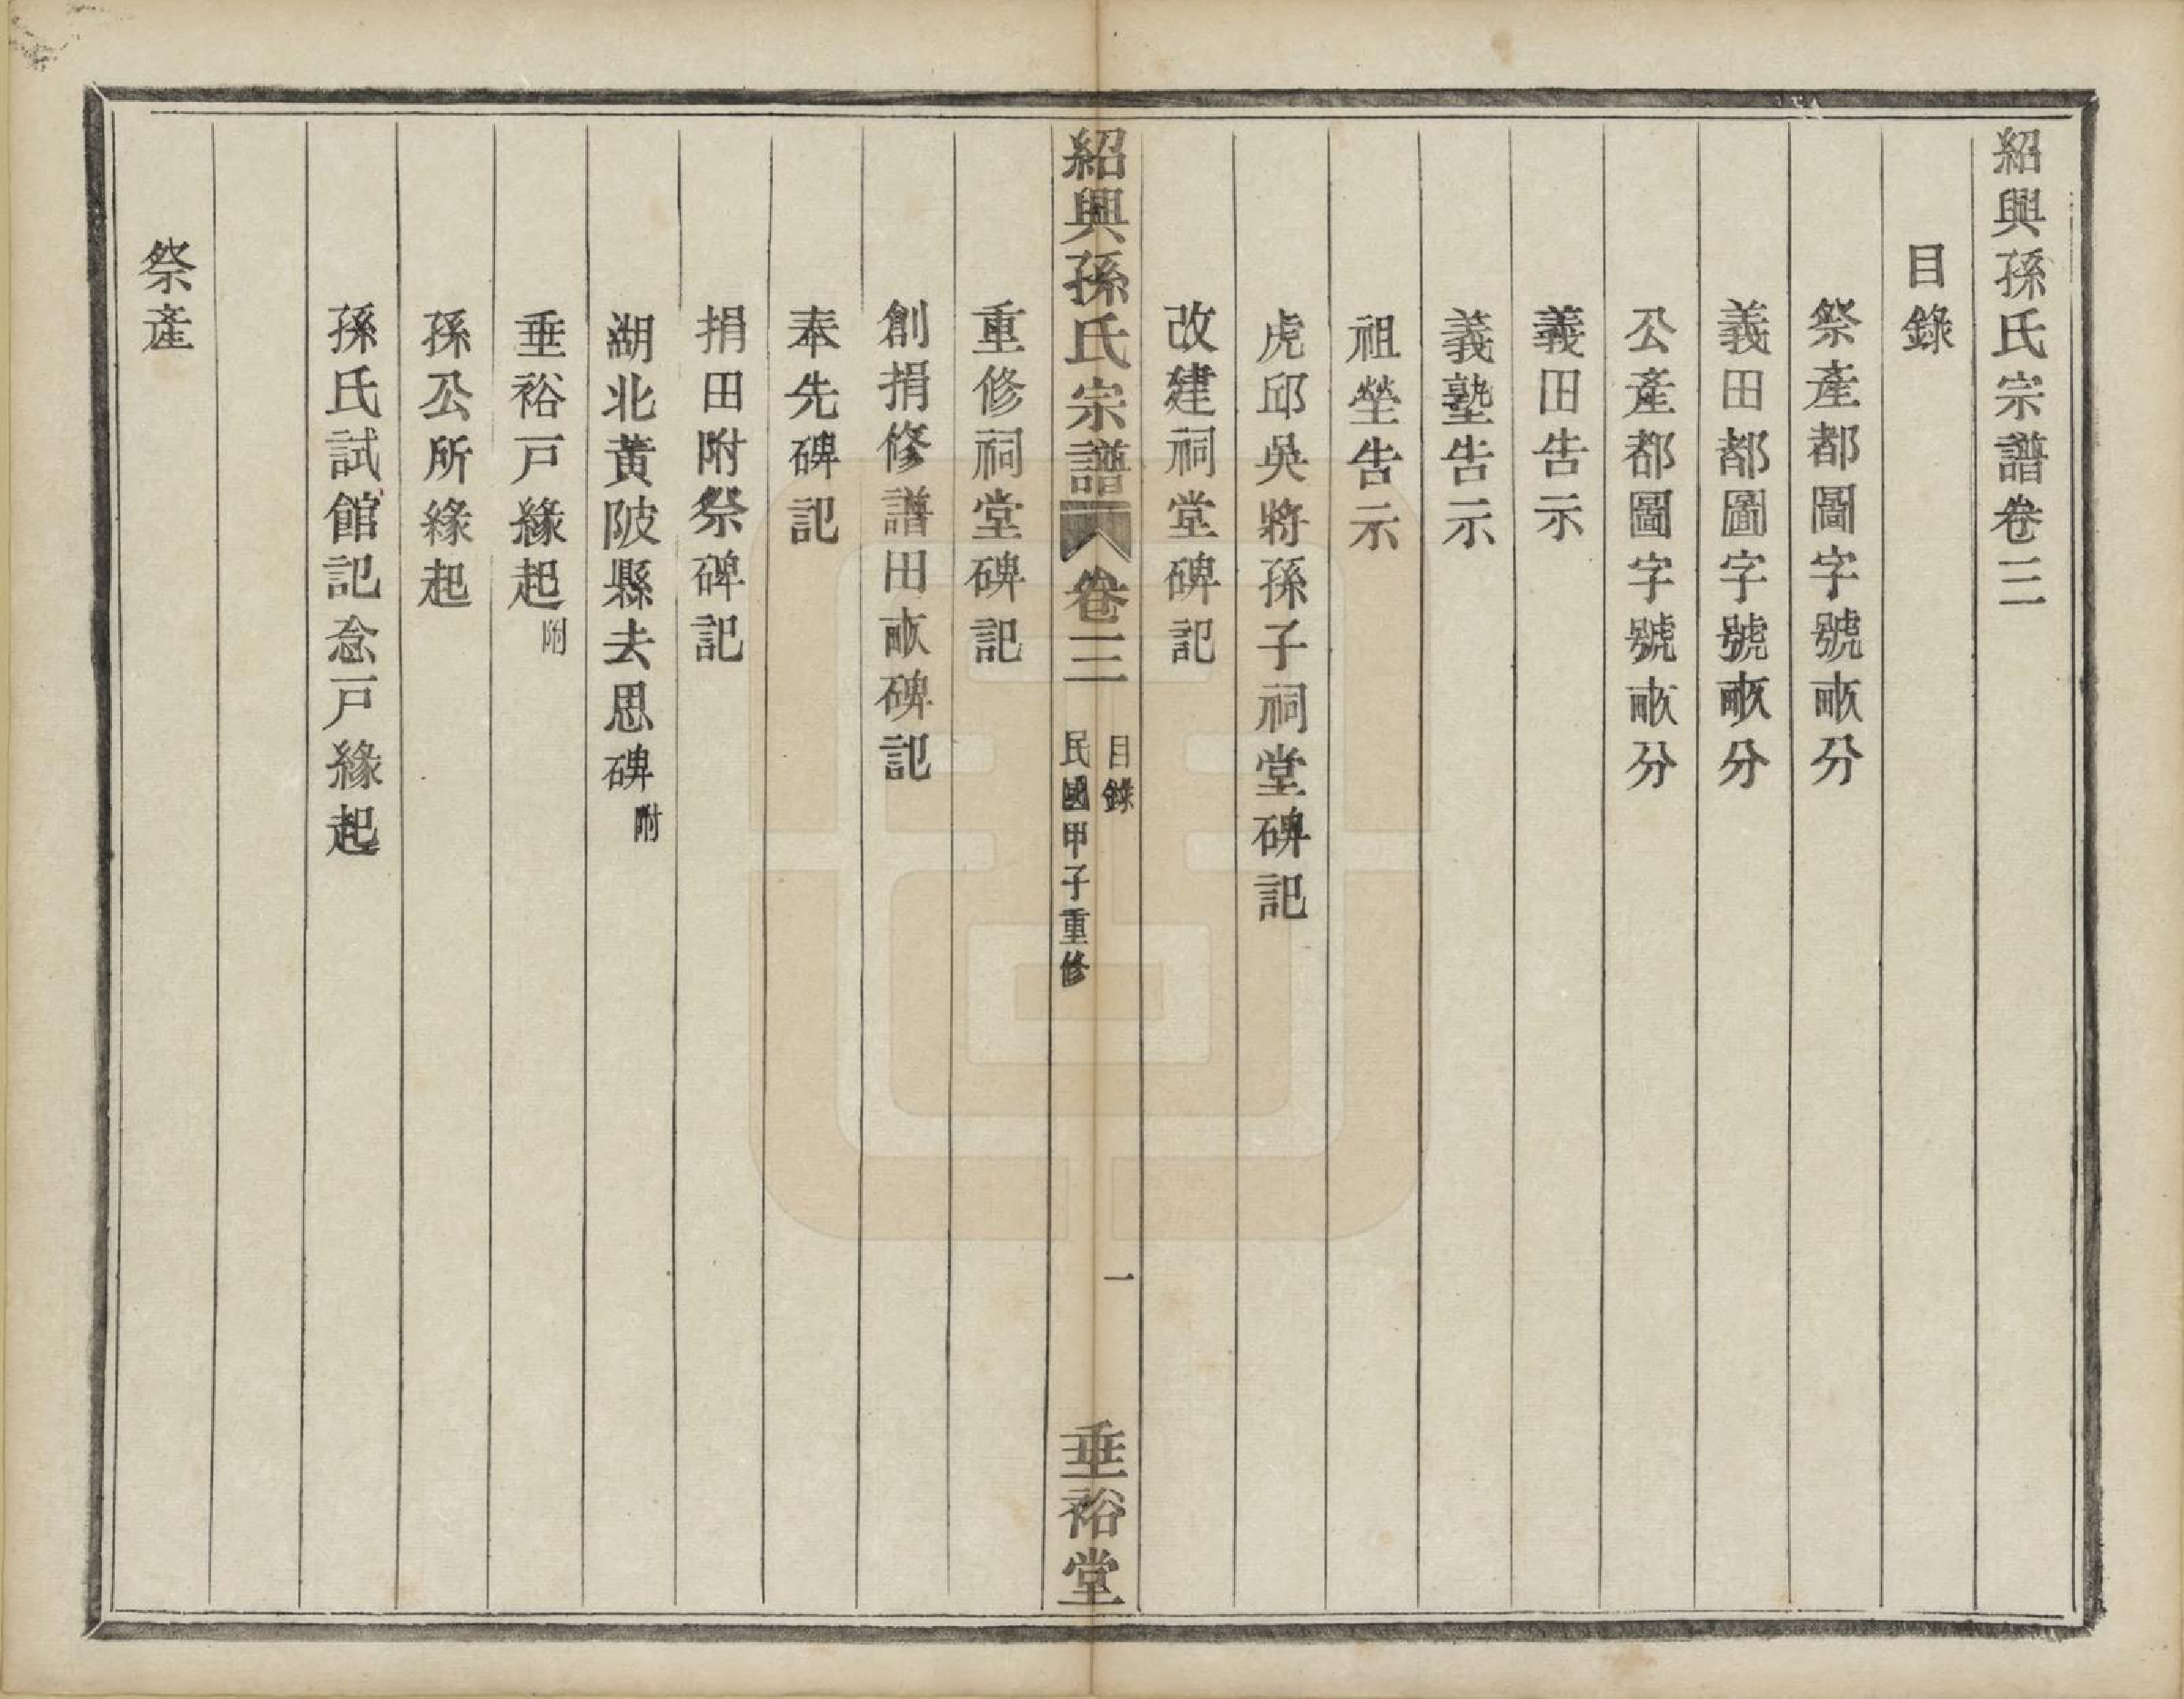 紹興孫氏宗譜卷三
目錄
祭產都圖字號畝分
義田都圖字號畝分
公產都圖字號畝分
義田告示
義塾告示
祖塋告示
虎邱吳將孫子祠堂碑記
改建祠堂碑記
紹興孫氏宗譜 卷三 目錄 民國甲子重修 一 垂裕堂
重修祠堂碑記
創捐修譜田畝碑記
奉先碑記
捐田附祭碑記
湖北黃陂縣去思碑附
垂裕戸緣起附
孫公所緣起
孫氏試館記念戸緣起
祭產